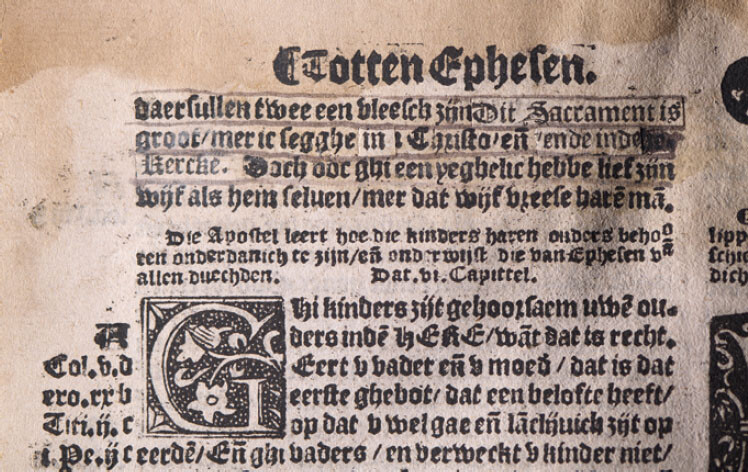 Totten Ephesen.
daer sullen twee een vleesch zijn Dit Sacrament is
groot/mer ic segghe in Christo/eñ ende in de
Kercke. Doch ooc ghi een yeghelic hebbe lief zijn
wijf als hem seluen/mer dat wijf vreese harē mā.
Die Apostel leert hoe die kinders haren ouders behoo
ren onderdanich te zijn/eñ onderwijst die van Ephesen vā
allen duechden. Dat .vi. Capittel.
Ghi kinders zijt gehoorsaem uwē ou-
A ders indē HERE/wāt dat is recht.
Col.v.d Eert v vader eñ v moed/dat is dat
ero.xx b eerste ghebot/dat een belofte heeft/
Titi.ij.c op dat v wel gae eñ lāckjuich zijt op
i.Pe.ij c eerdē/Eñ ghi vaders/en verweckt v kinder niet/
lipp
schic
dich